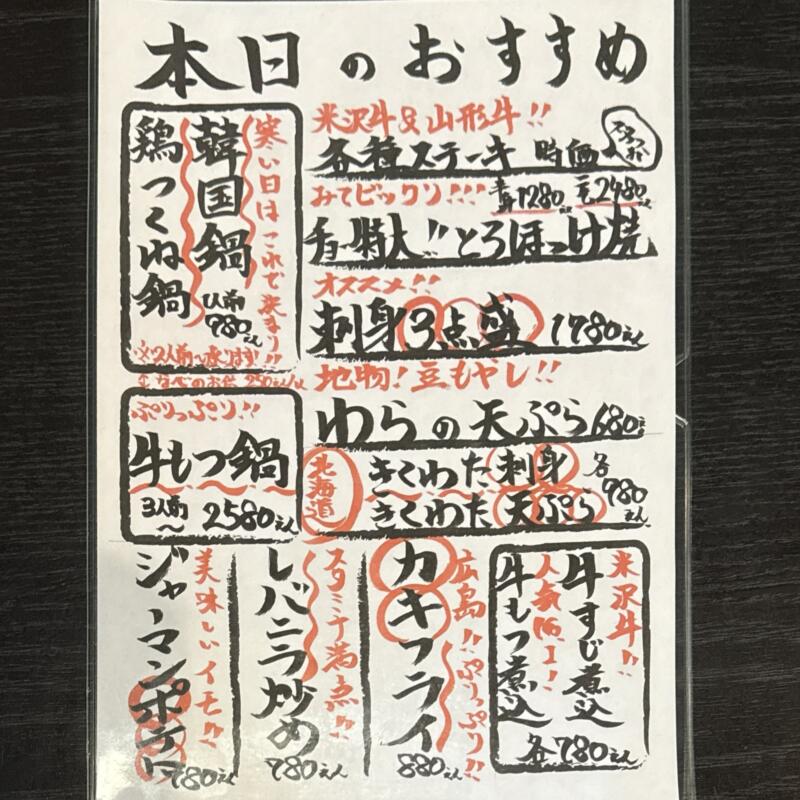 本日のおすすめ
寒い日はこれで決まり!!
韓国鍋
鶏つくね鍋
1人前
980えん
※2人前〜承ります!
米沢牛&山形牛!!
各種ステーキ 時価
みてビックリ!!! 半身1280えん 2480えん
チョー特大!!とろほっけ焼
オススメ!!
刺身3点盛 1780えん
地物!豆もやし!!
わらの天ぷら 680えん
ぷりっぷり!!
牛もつ鍋
3人前〜 2580えん
北海道
きくわた刺身
きくわた天ぷら
各980えん
米沢牛!!
牛すじ煮込
人気No.1!
牛もつ煮込
各780えん
広島!!ぷりっぷり!!
カキフライ
880えん
スタミナ満点!!
レバニラ炒め
780えん
美味しいイモ!!
ジャーマンポテト
780えん